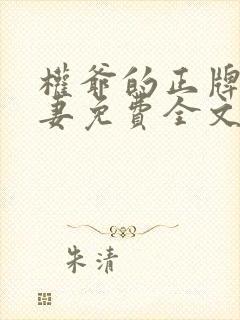 權爺的正牌
妻免費全文
朱清